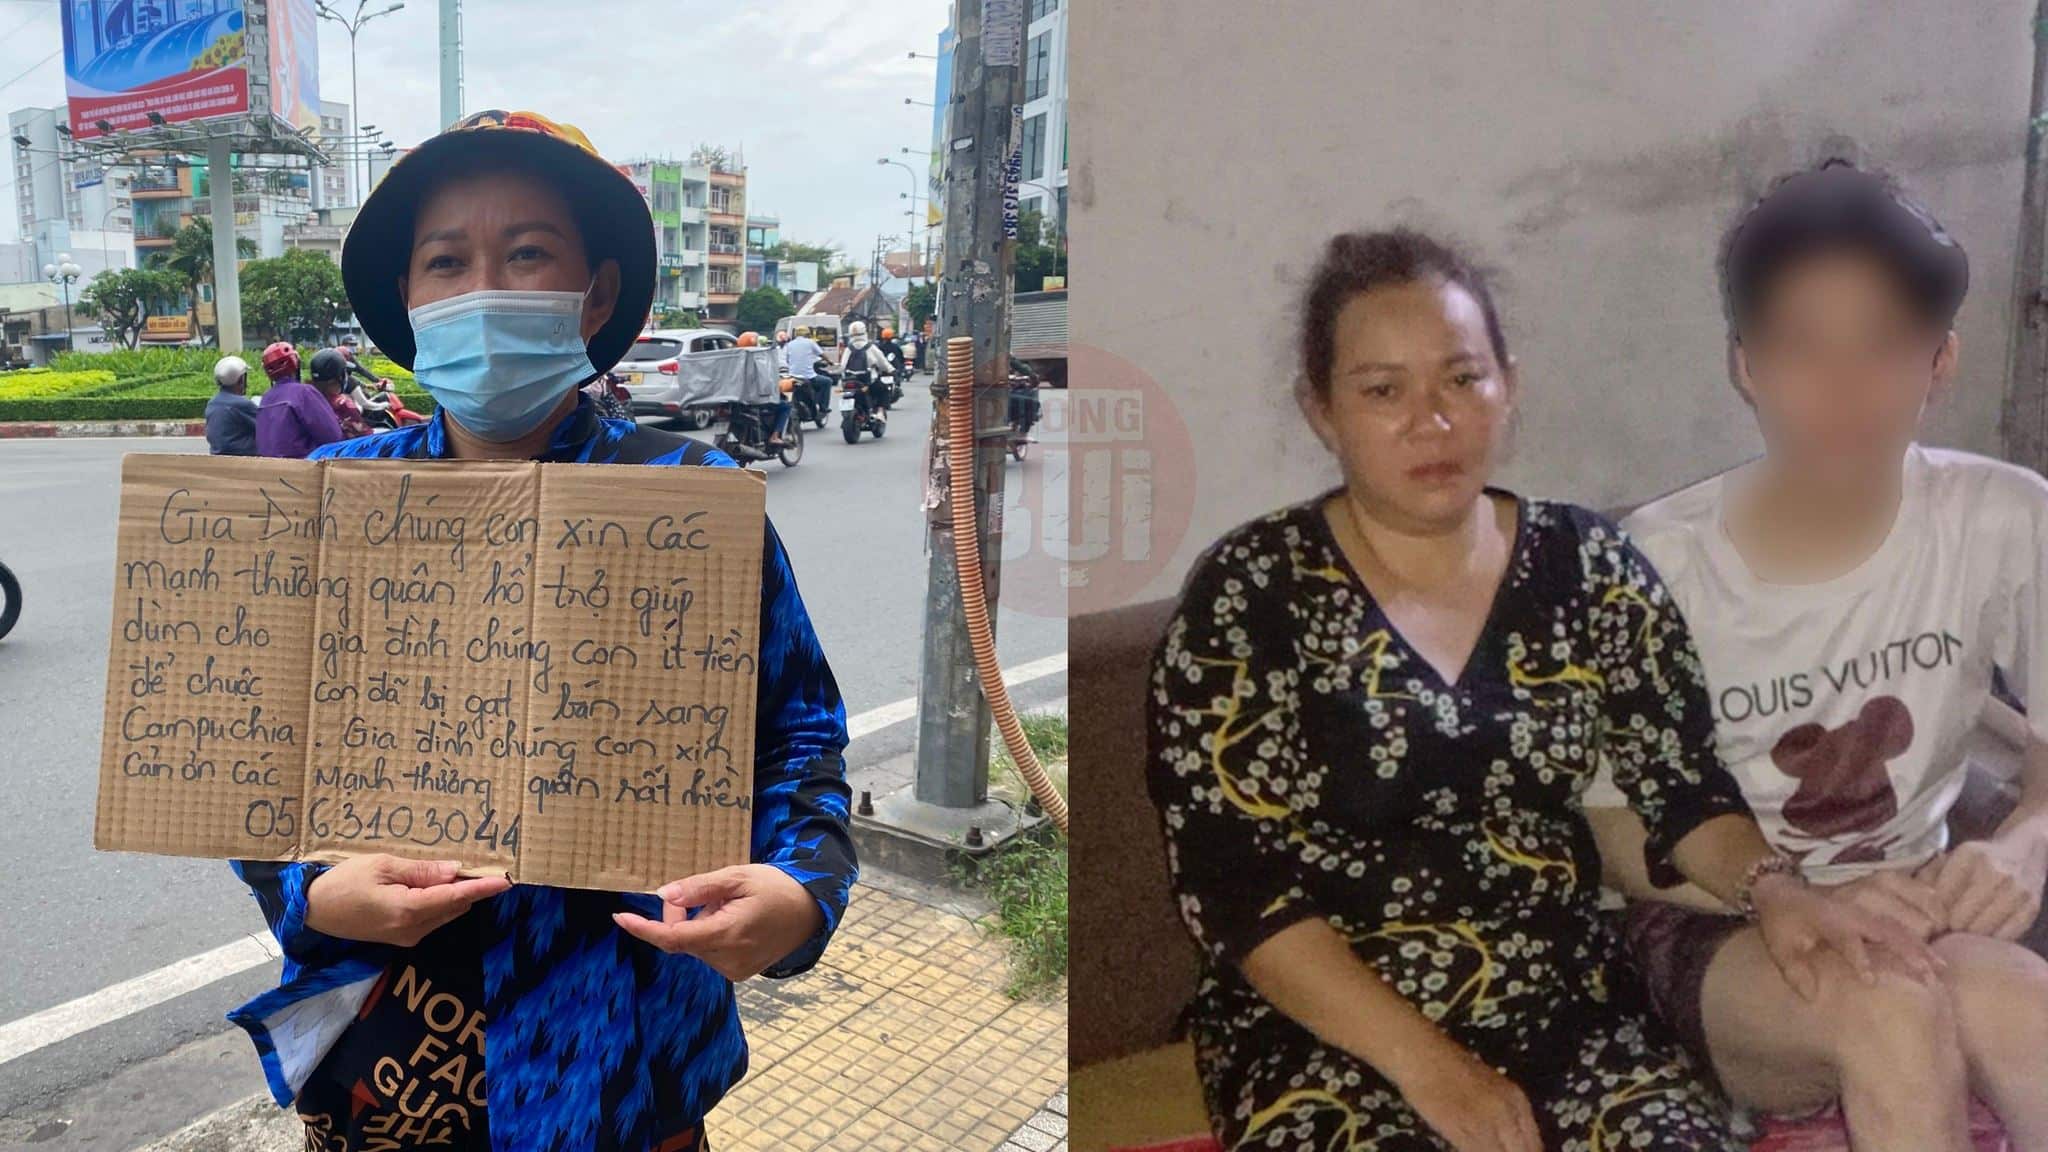 Gia Đình chúng con xin các
mạnh thường quân hổ trợ giúp
dùm cho gia đình chúng con ít tiền
để chuộc con đã bị gạt bán sang
Campuchia. Gia đình chúng con xin
cản ơn các mạnh thường quân rất nhiều
0563103044
NOR
FAC
GUC
PHONG
BÙI
LOUIS VUITTON